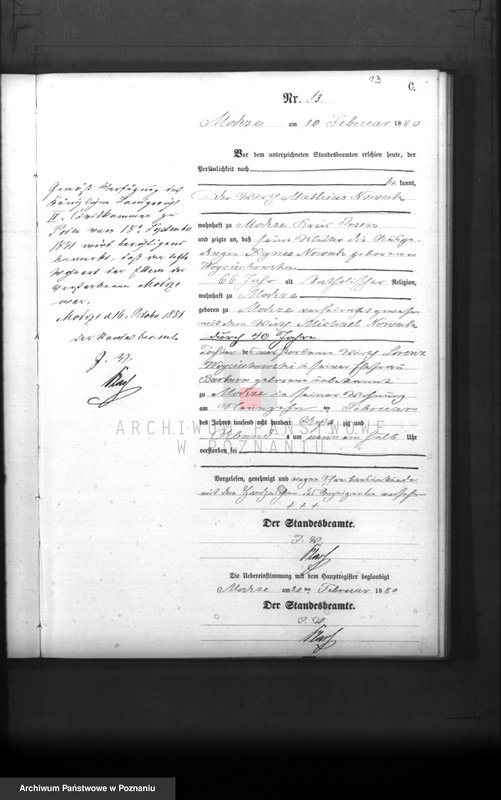 13
C.
Nr. 13.
Mokre am 20 Februar 1880
Vor dem unterzeichneten Standesbeamten erschien heute, der
Persönlichkeit nach
kannt,
der Wirth Mathias Nowak
wohnhaft zu Mokre Kreis Posen
und zeigte an, daß seine Mutter die
Agnes Nowak geborene
Wojciechowska
66 Jahr alt katholischer Religion,
wohnhaft zu Mokre
geboren zu Mokre verheirathet gewesen
mit dem Wirth Michael Nowak
durch 40 Jahre
Tochter des verstorbenen Wirth Lorenz
Wojciechowski und seiner Ehefrau
Barbara geborene unbekannt
zu Mokre in seiner Wohnung
am Neunzehn ten Februar
des Jahres tausend acht hundert achtzig und
Abends um neun ein halb Uhr
verstorben sei
Vorgelesen, genehmigt und wegen Schreibensunkunde
mit dem Handzeichen des Anzeigenden versehen
+ + +
Der Standesbeamte.
J. V.
Die Uebereinstimmung mit dem Hauptregister beglaubigt
Mokre am 20ten Februar 1880
Der Standesbeamte.
J. V.
Gemäß Verfügung des
Königlichen Landgerichts
II. Civilkammer zu
Posen vom 18. September
1881 wird berichtigend
bemerkt, daß der letzte
Wohnort der Eltern der
Verstorbenen
war.
am 16. October 1881
Der Standesbeamte
J. V.
ARCHIWUM PAŃSTWOWE
W POZNANIU
Archiwum Państwowe w Poznaniu